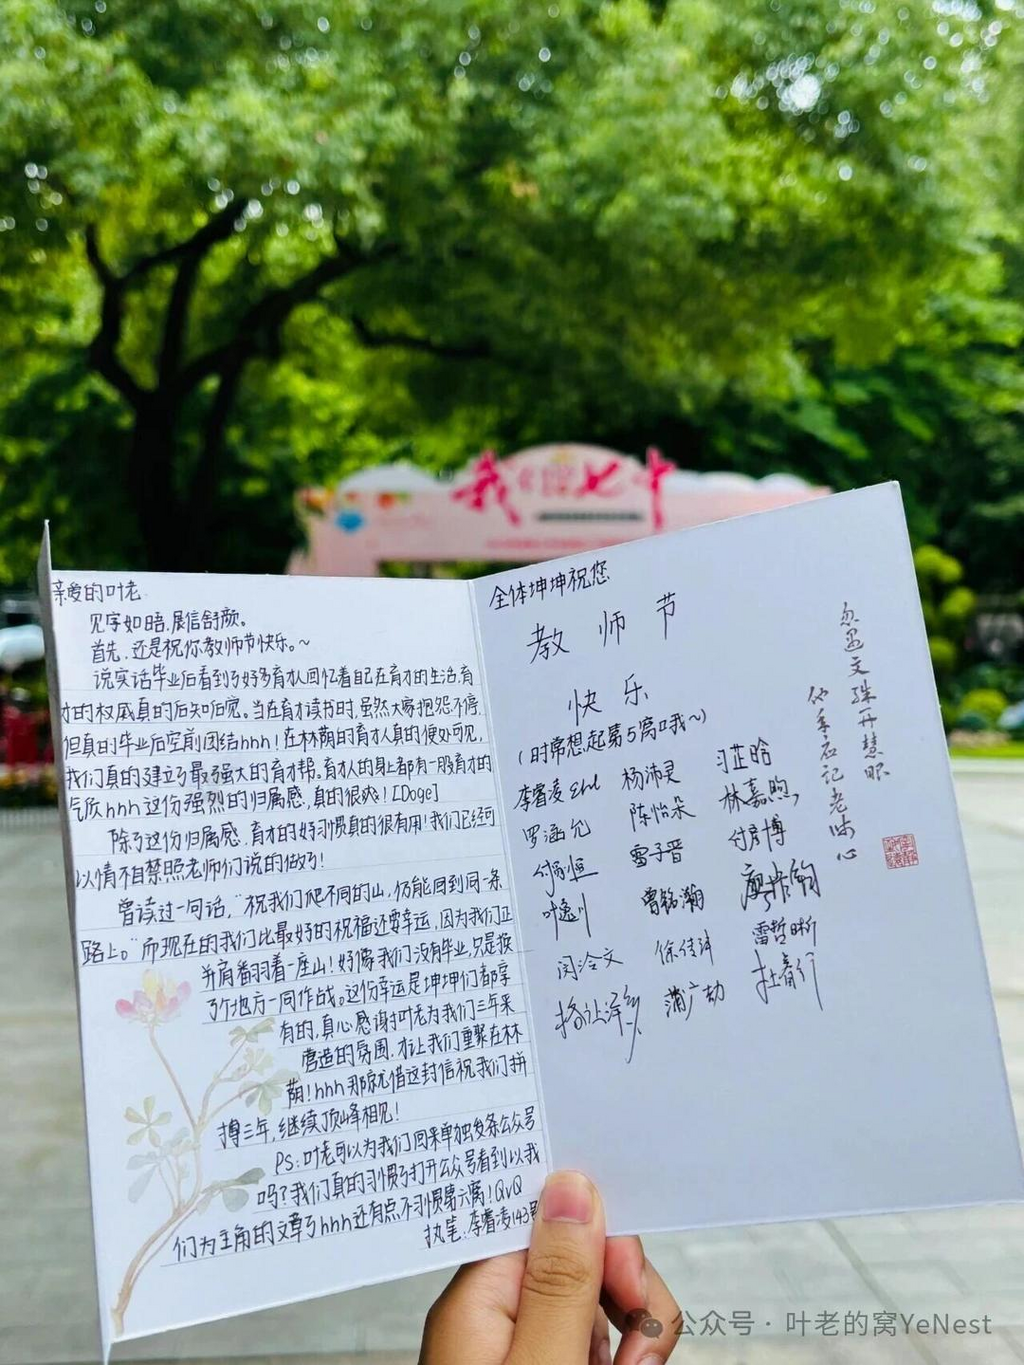 我在七中
亲爱的叶老
见字如晤,展信舒颜。
首先,还是祝你教师节快乐。~
说实话毕业后看到了好多育才人回忆着自己在育才的生活,育
才的权威真的后知后觉。当在育才读书时,虽然大家抱怨不停,
但真的毕业后空前团结hhh!在林荫的育才人真的随处可见,
我们真的建立了最强大的育才帮。育才人的身上都有一股育才的
气质hhh这份强烈的归属感,真的很爽![Doge]
除了这份归属感,育才的好习惯真的很有用!我们已经可
以情不自禁照老师们说的做了!
曾读过一句话,"祝我们爬不同的山,仍能回到同一条
路上。"而现在的我们比最好的祝福还要幸运,因为我们正
并肩翻羽着一座山!好像我们没有毕业,只是换
了个地方一同作战。这份幸运是坤坤们都享
有的,真心感谢叶老为我们三年来
营造的氛围,才让我们重聚在林
荫!hhh那就借这封信祝我们拼
搏三年,继续顶峰相见!
PS:叶老可以为我们回来单独发条公众号
吗?我们真的习惯了打开公众号看到以我
们为主角的文章了hhh还有点不习惯第六窝!QvQ
执笔:李睿凌143号
全体坤坤祝您
教师节
快乐
(时常想起第5窝哦~)
李睿凌 杨沛灵 习芷晗
罗涵允 陈怡朵 林嘉煦
雷子晋 付彦博
叶逸川 曾铭瀚
闵泠文 徐佳讳 雷哲晰
蒲广劫 杜春行
忽遇文殊开慧眼
他年应记老师心
公众号·叶老的窝YeNest